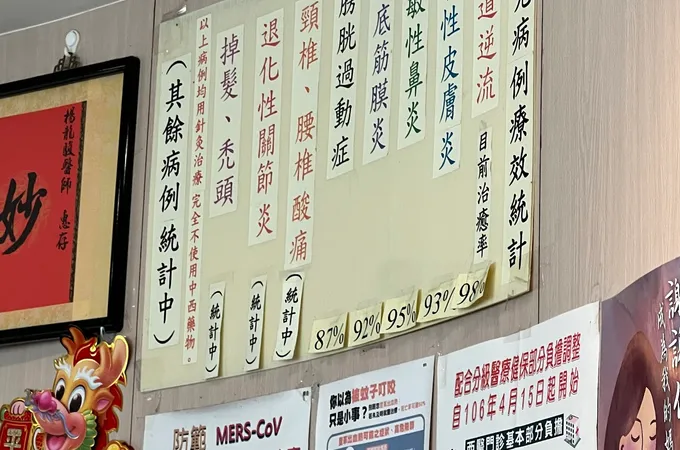 病例療效統計
道逆流 目前治癒率 98%
性皮膚炎 93%
敏性鼻炎 95%
底筋膜炎 92%
膀胱過動症 87%
頸椎、腰椎酸痛 (統計中)
退化性關節炎 (統計中)
掉髮、禿頭 (統計中)
以上病例均用針灸治療 完全不使用中西藥物。
(其餘病例統計中)
醫師 惠存
妙
防範 MERS-CoV
你以為被蚊子叮咬
只是小事?
配合分級醫療健保部分負擔調整
自106年4月15日起開始
西醫門診基本部分負擔
成為我的媽